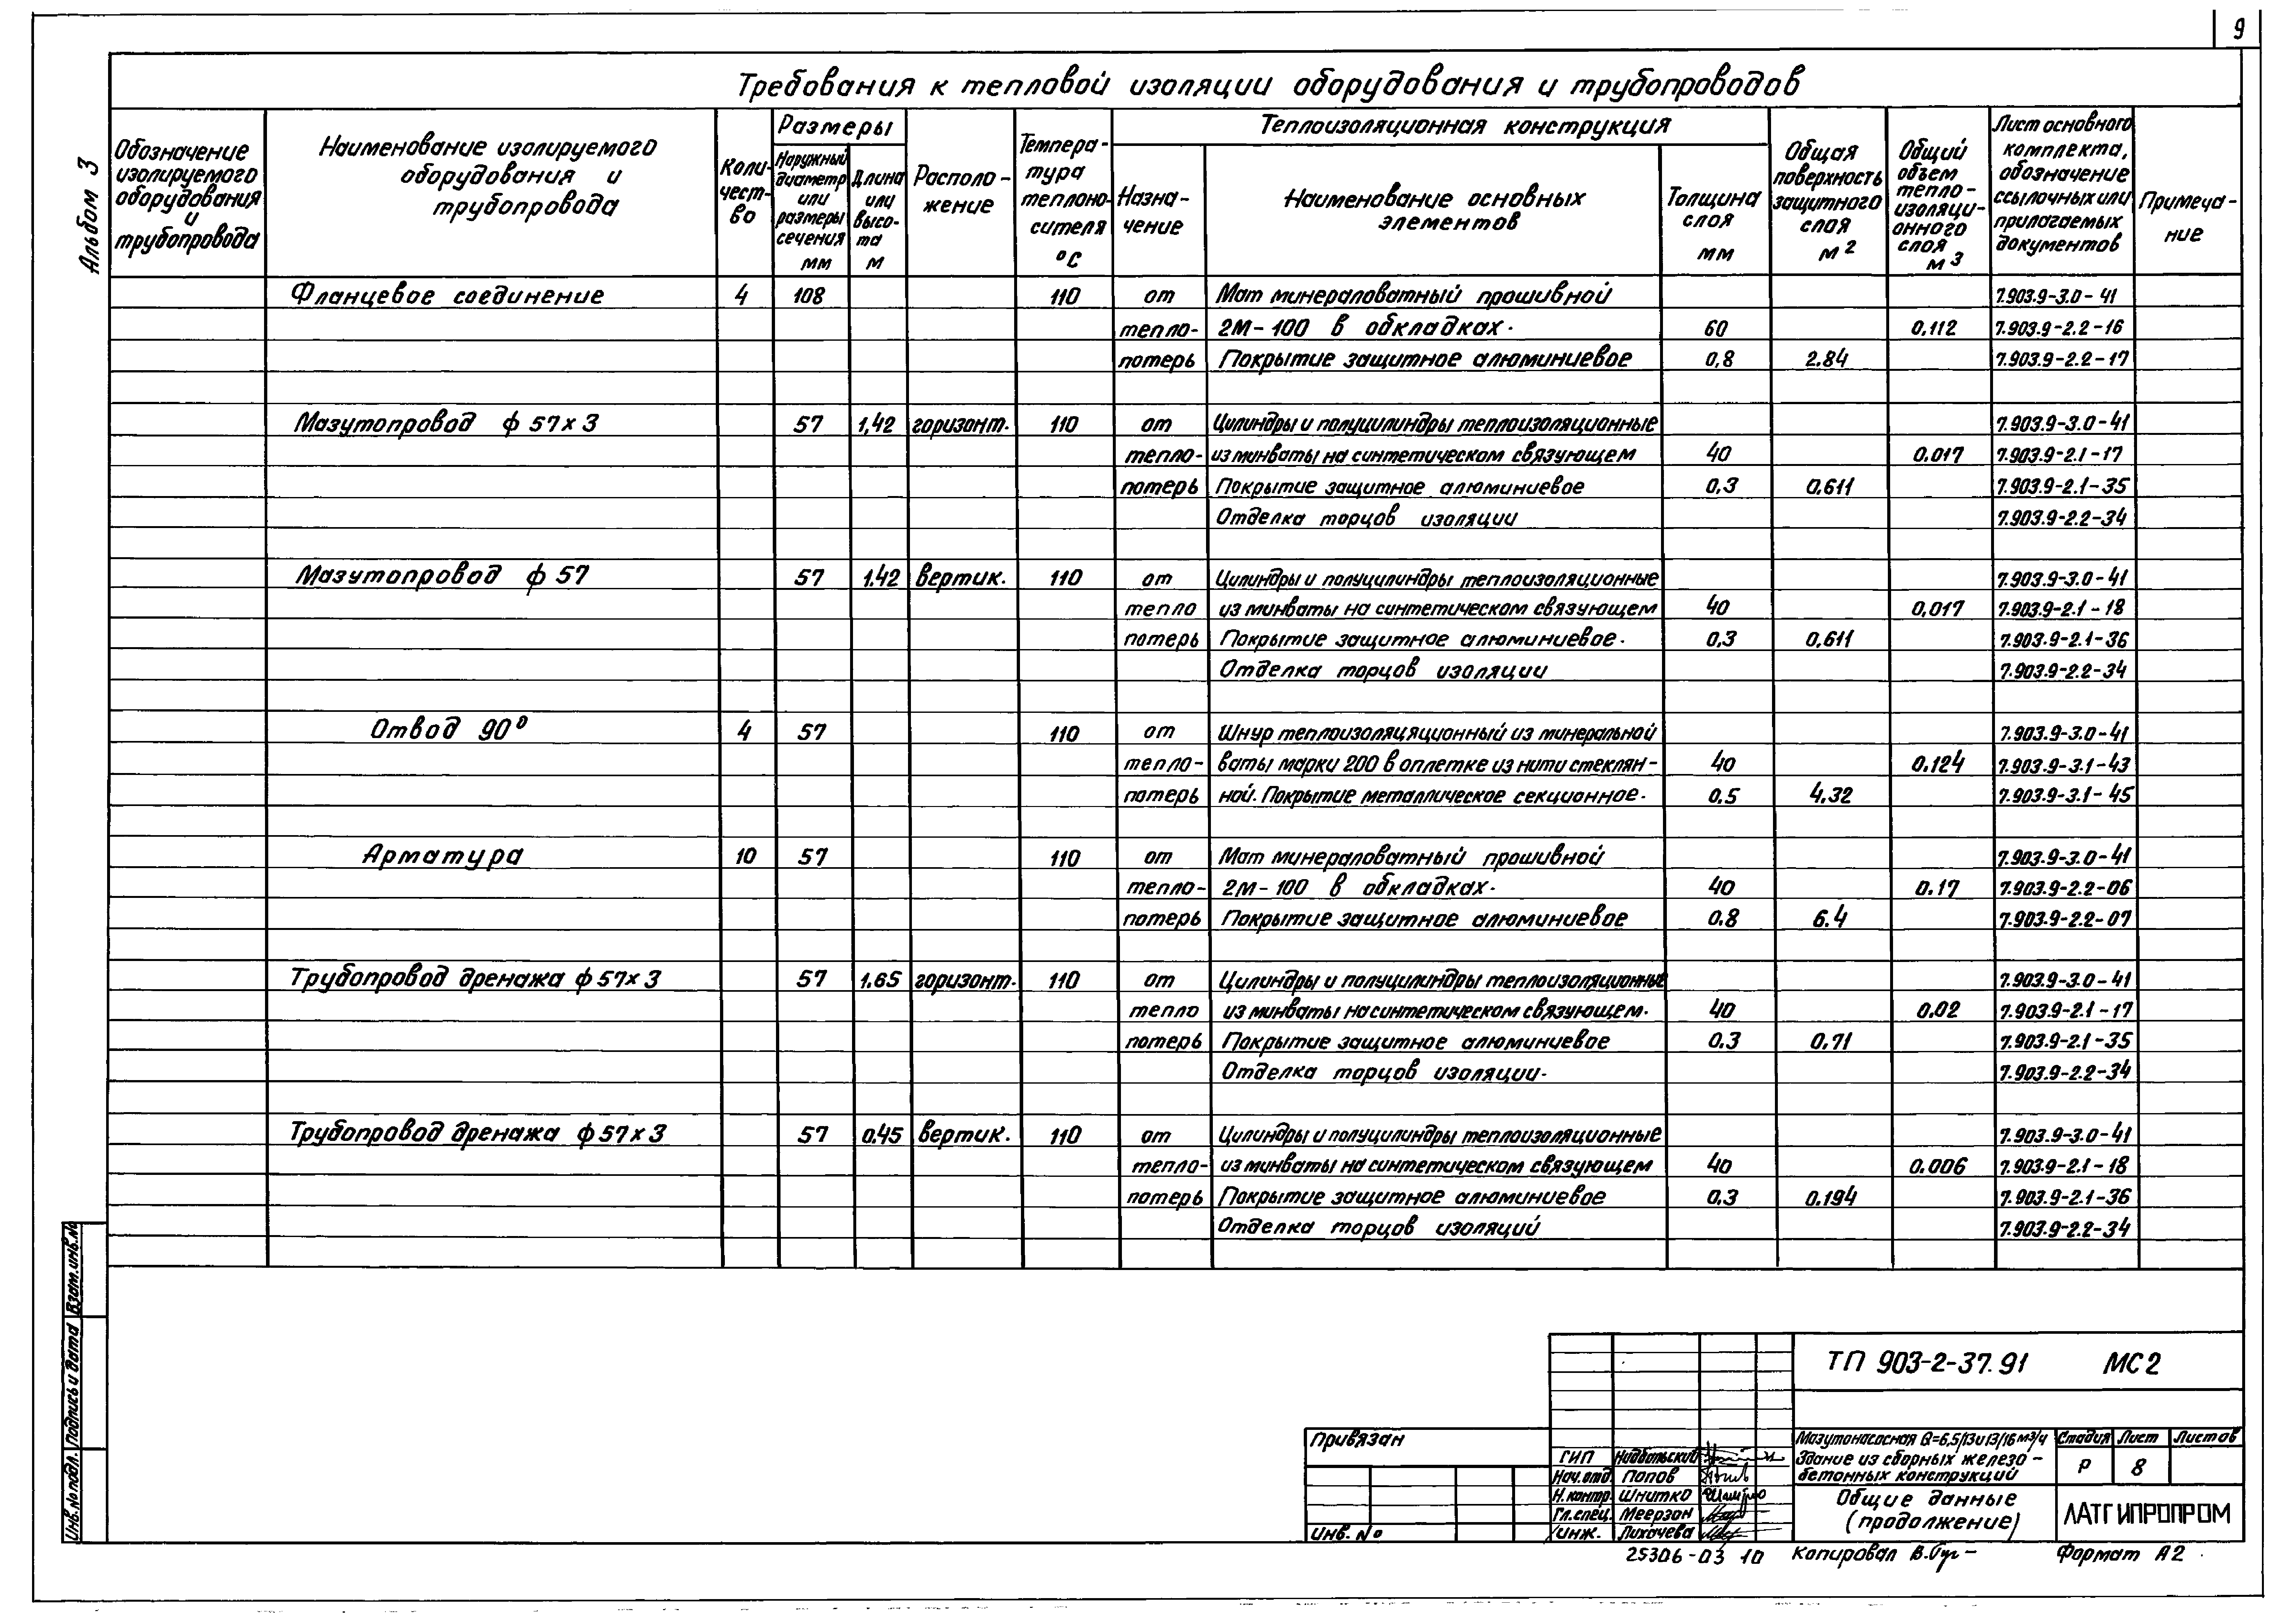 9
Альбом 3
Требования к тепловой изоляции оборудования и трубопроводов
Обозначение изолируемого оборудования и трубопровода
Наименование изолируемого оборудования и трубопровода
Коли-чест-во
Размеры
Наружный диаметр или размеры сечения мм
Длина или высо-та м
Располо-жение
Темпера-тура теплоно-сителя °С
Теплоизоляционная конструкция
Назна-чение
Наименование основных элементов
Толщина слоя мм
Общая поверхность защитного слоя м2
Общий объем тепло-изоляци-онного слоя м3
Лист основного комплекта, обозначение ссылочных или прилагаемых документов
Примеча-ние
Фланцевое соединение 4 108 110 от Мат минераловатный прошивной 7.903.9-3.0-41
тепло- 2М-100 в обкладках. 60 0,112 7.903.9-2.2-16
потерь Покрытие защитное алюминиевое 0,8 2.84 7.903.9-2.2-17
Мазутопровод ф 57х3 57 1,42 горизонт. 110 от Цилиндры и полуцилиндры теплоизоляционные 7.903.9-3.0-41
тепло- из минваты на синтетическом связующем 40 0.017 7.903.9-2.1-17
потерь Покрытие защитное алюминиевое 0,3 0,611 7.903.9-2.1-35
Отделка торцов изоляции 7.903.9-2.2-34
Мазутопровод ф 57 57 1.42 вертик. 110 от Цилиндры и полуцилиндры теплоизоляционные 7.903.9-3.0-41
тепло из минваты на синтетическом связующем 40 0,017 7.903.9-2.1-18
потерь Покрытие защитное алюминиевое. 0,3 0,611 7.903.9-2.1-36
Отделка торцов изоляции 7.903.9-2.2-34
Отвод 90° 4 57 110 от Шнур теплоизоляцяционный из минеральной 7.903.9-3.0-41
тепло- ваты марки 200 в оплетке из нити стеклян- 40 0.124 7.903.9-3.1-43
потерь ной. Покрытие металлическое секционное. 0.5 4,32 7.903.9-3.1-45
Арматура 10 57 110 от Мат минераловатный прошивной 7.903.9-3.0-41
тепло- 2М-100 в обкладках. 40 0.17 7.903.9-2.2-06
потерь Покрытие защитное алюминиевое 0.8 6.4 7.903.9-2.2-07
Трубопровод дренажа ф 57х3 57 1.65 горизонт. 110 от Цилиндры и полуцилиндры теплоизоляционные 7.903.9-3.0-41
тепло из минваты на синтетическом связующем. 40 0.02 7.903.9-2.1-17
потерь Покрытие защитное алюминиевое 0.3 0,71 7.903.9-2.1-35
Отделка торцов изоляции. 7.903.9-2.2-34
Трубопровод дренажа ф 57х3 57 0.45 вертик. 110 от Цилиндры и полуцилиндры теплоизоляционные 7.903.9-3.0-41
тепло- из минваты на синтетическом связующем 40 0.006 7.903.9-2.1-18
потерь Покрытие защитное алюминиевое 0,3 0.194 7.903.9-2.1-36
Отделка торцов изоляций 7.903.9-2.2-34
Взам.инв.№
Подпись и дата
Инв.№ подл.
ТП 903-2-37.91 МС2
Привязан
Инв. №
ГИП Нидбальский
Нач.отд Попов
Н.контр. Шнитко
Гл.спец. Меерзон
Инж. Лихачева
Мазутонасосная Q=6,5/13 и 13/16 м3/ч
Здание из сборных железо-
бетонных конструкций
Стадия Лист Листов
Р 8
Общие данные
(продолжение)
ЛАТГИПРОПРОМ
25306-03 10 Копировал Формат А2